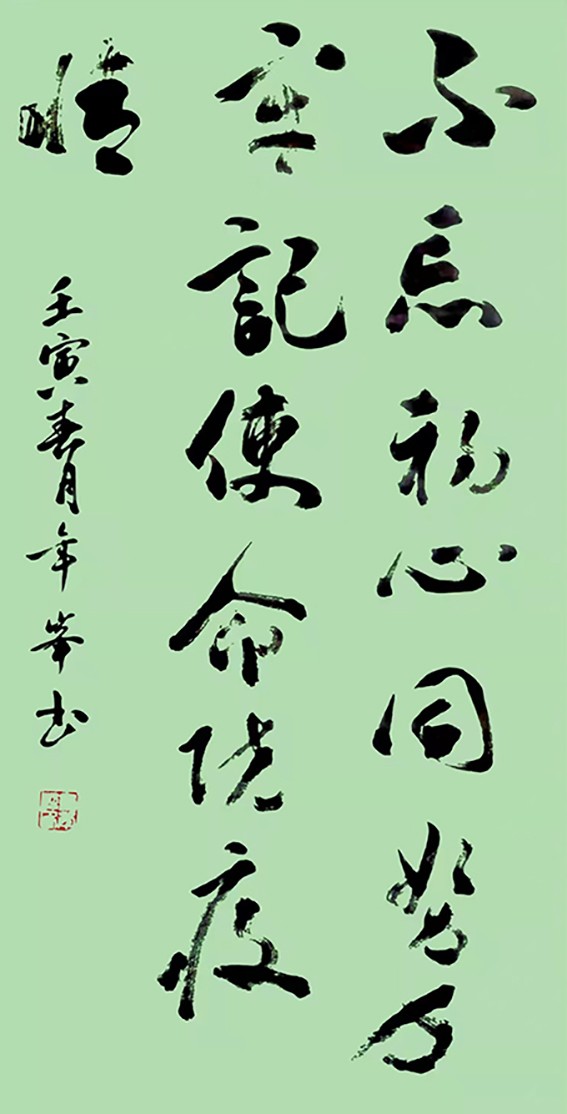 不忘初心同努力
牢記使命抗疫
情
壬寅春月年峯书